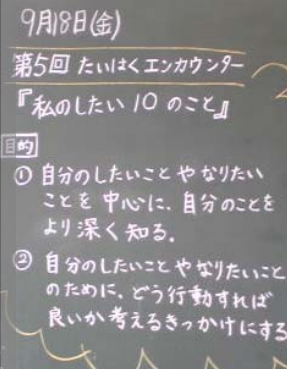 9月18日(金)
第5回 たいはくエンカウンター
『私のしたい10のこと』
目的
① 自分のしたいことやなりたい
ことを中心に、自分のことを
より深く知る。
② 自分のしたいことやなりたいこと
のために、どう行動すれば
良いか考えるきっかけにする